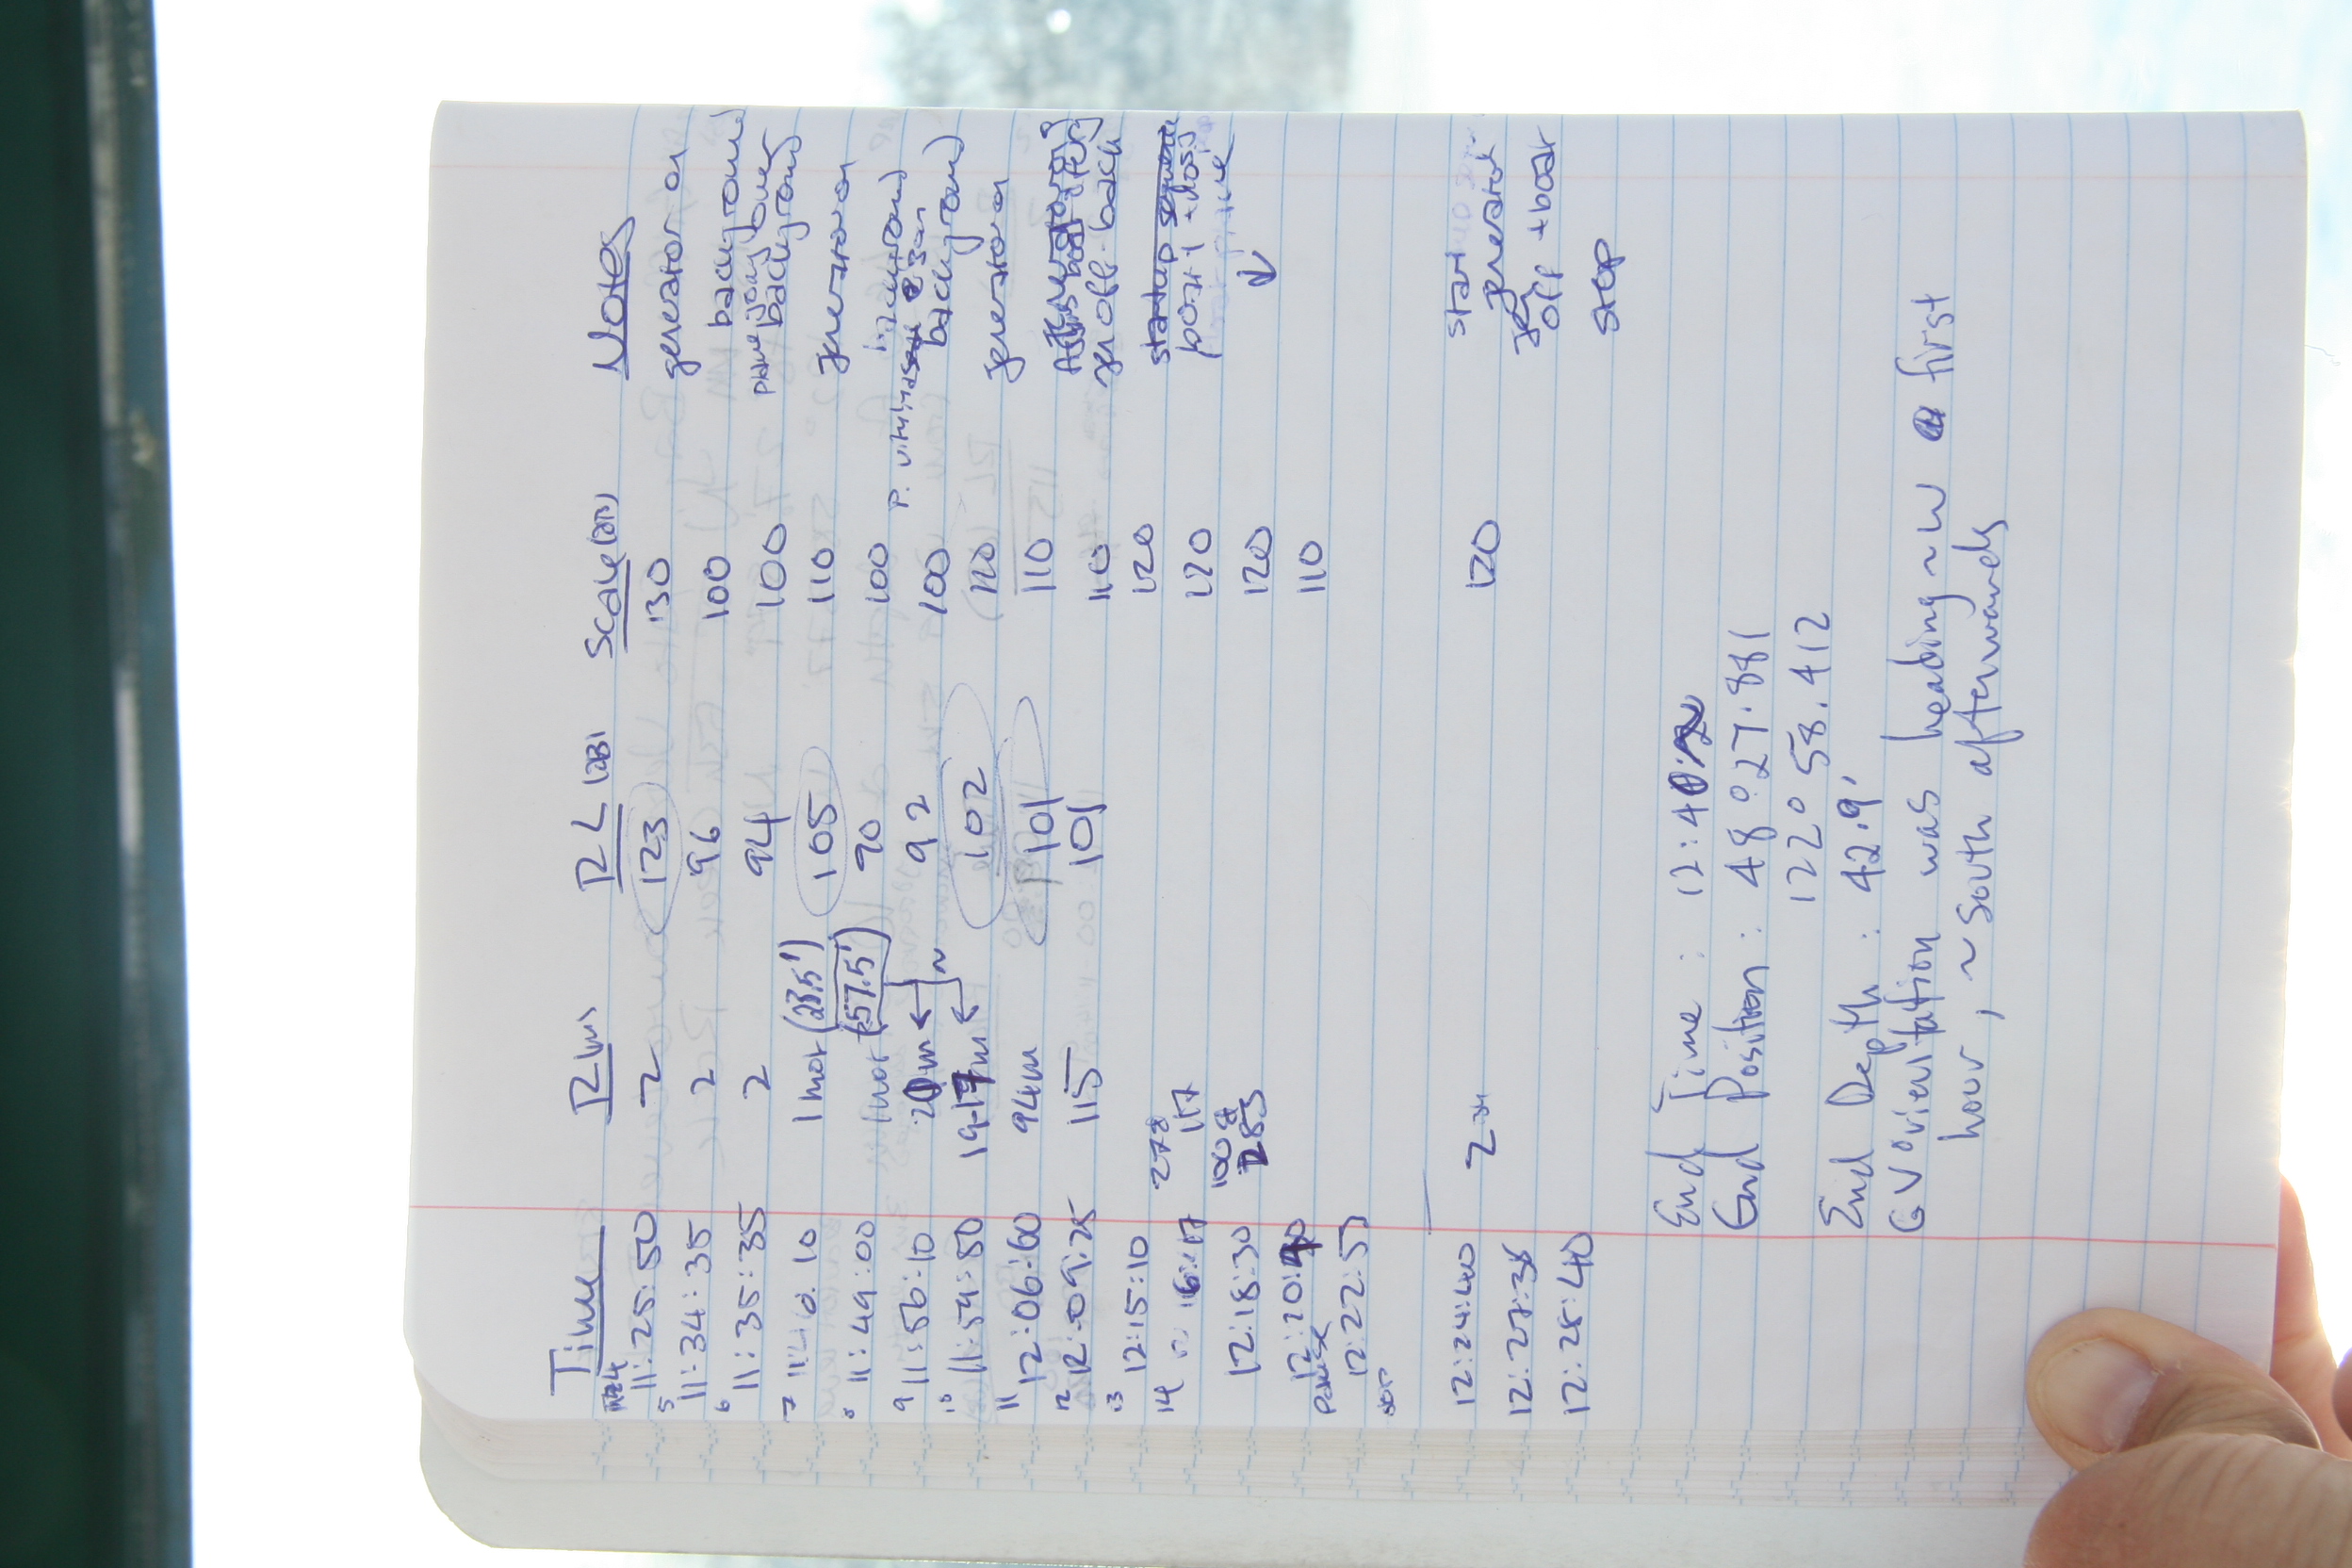 Time R (m) RL (dB) Scale (dB) Notes
4 11:25:50 2 123 130 generator on
5 11:34:35 2 96 100 background
6 11:35:35 2 94 100 plane going over background
7 11:40:10 1 m or (23.5') 105 110 generator on
8 11:49:00 1 m or (57.5') 90 100 background
9 11:56:10 20m 92 100 background
10 11:59:50 19-17m 102 120 generator on
11 12:06:60 94m 101 110
12 12:09:25 115 101 110 gen off - back
13 12:15:10 120
14 16:17 278 117 120 boat +
12:18:30 100 285 120
12:20:40 110
pause
12:22:51
on
12:24:40 2 120 start generator
12:27:38 gen off + boat
12:28:40 stop
End Time: 12:40
End Position: 48° 27.881
122° 58.412
End Depth: 42.9'
GV orientation was heading ~W first
hour, ~ South afterwards